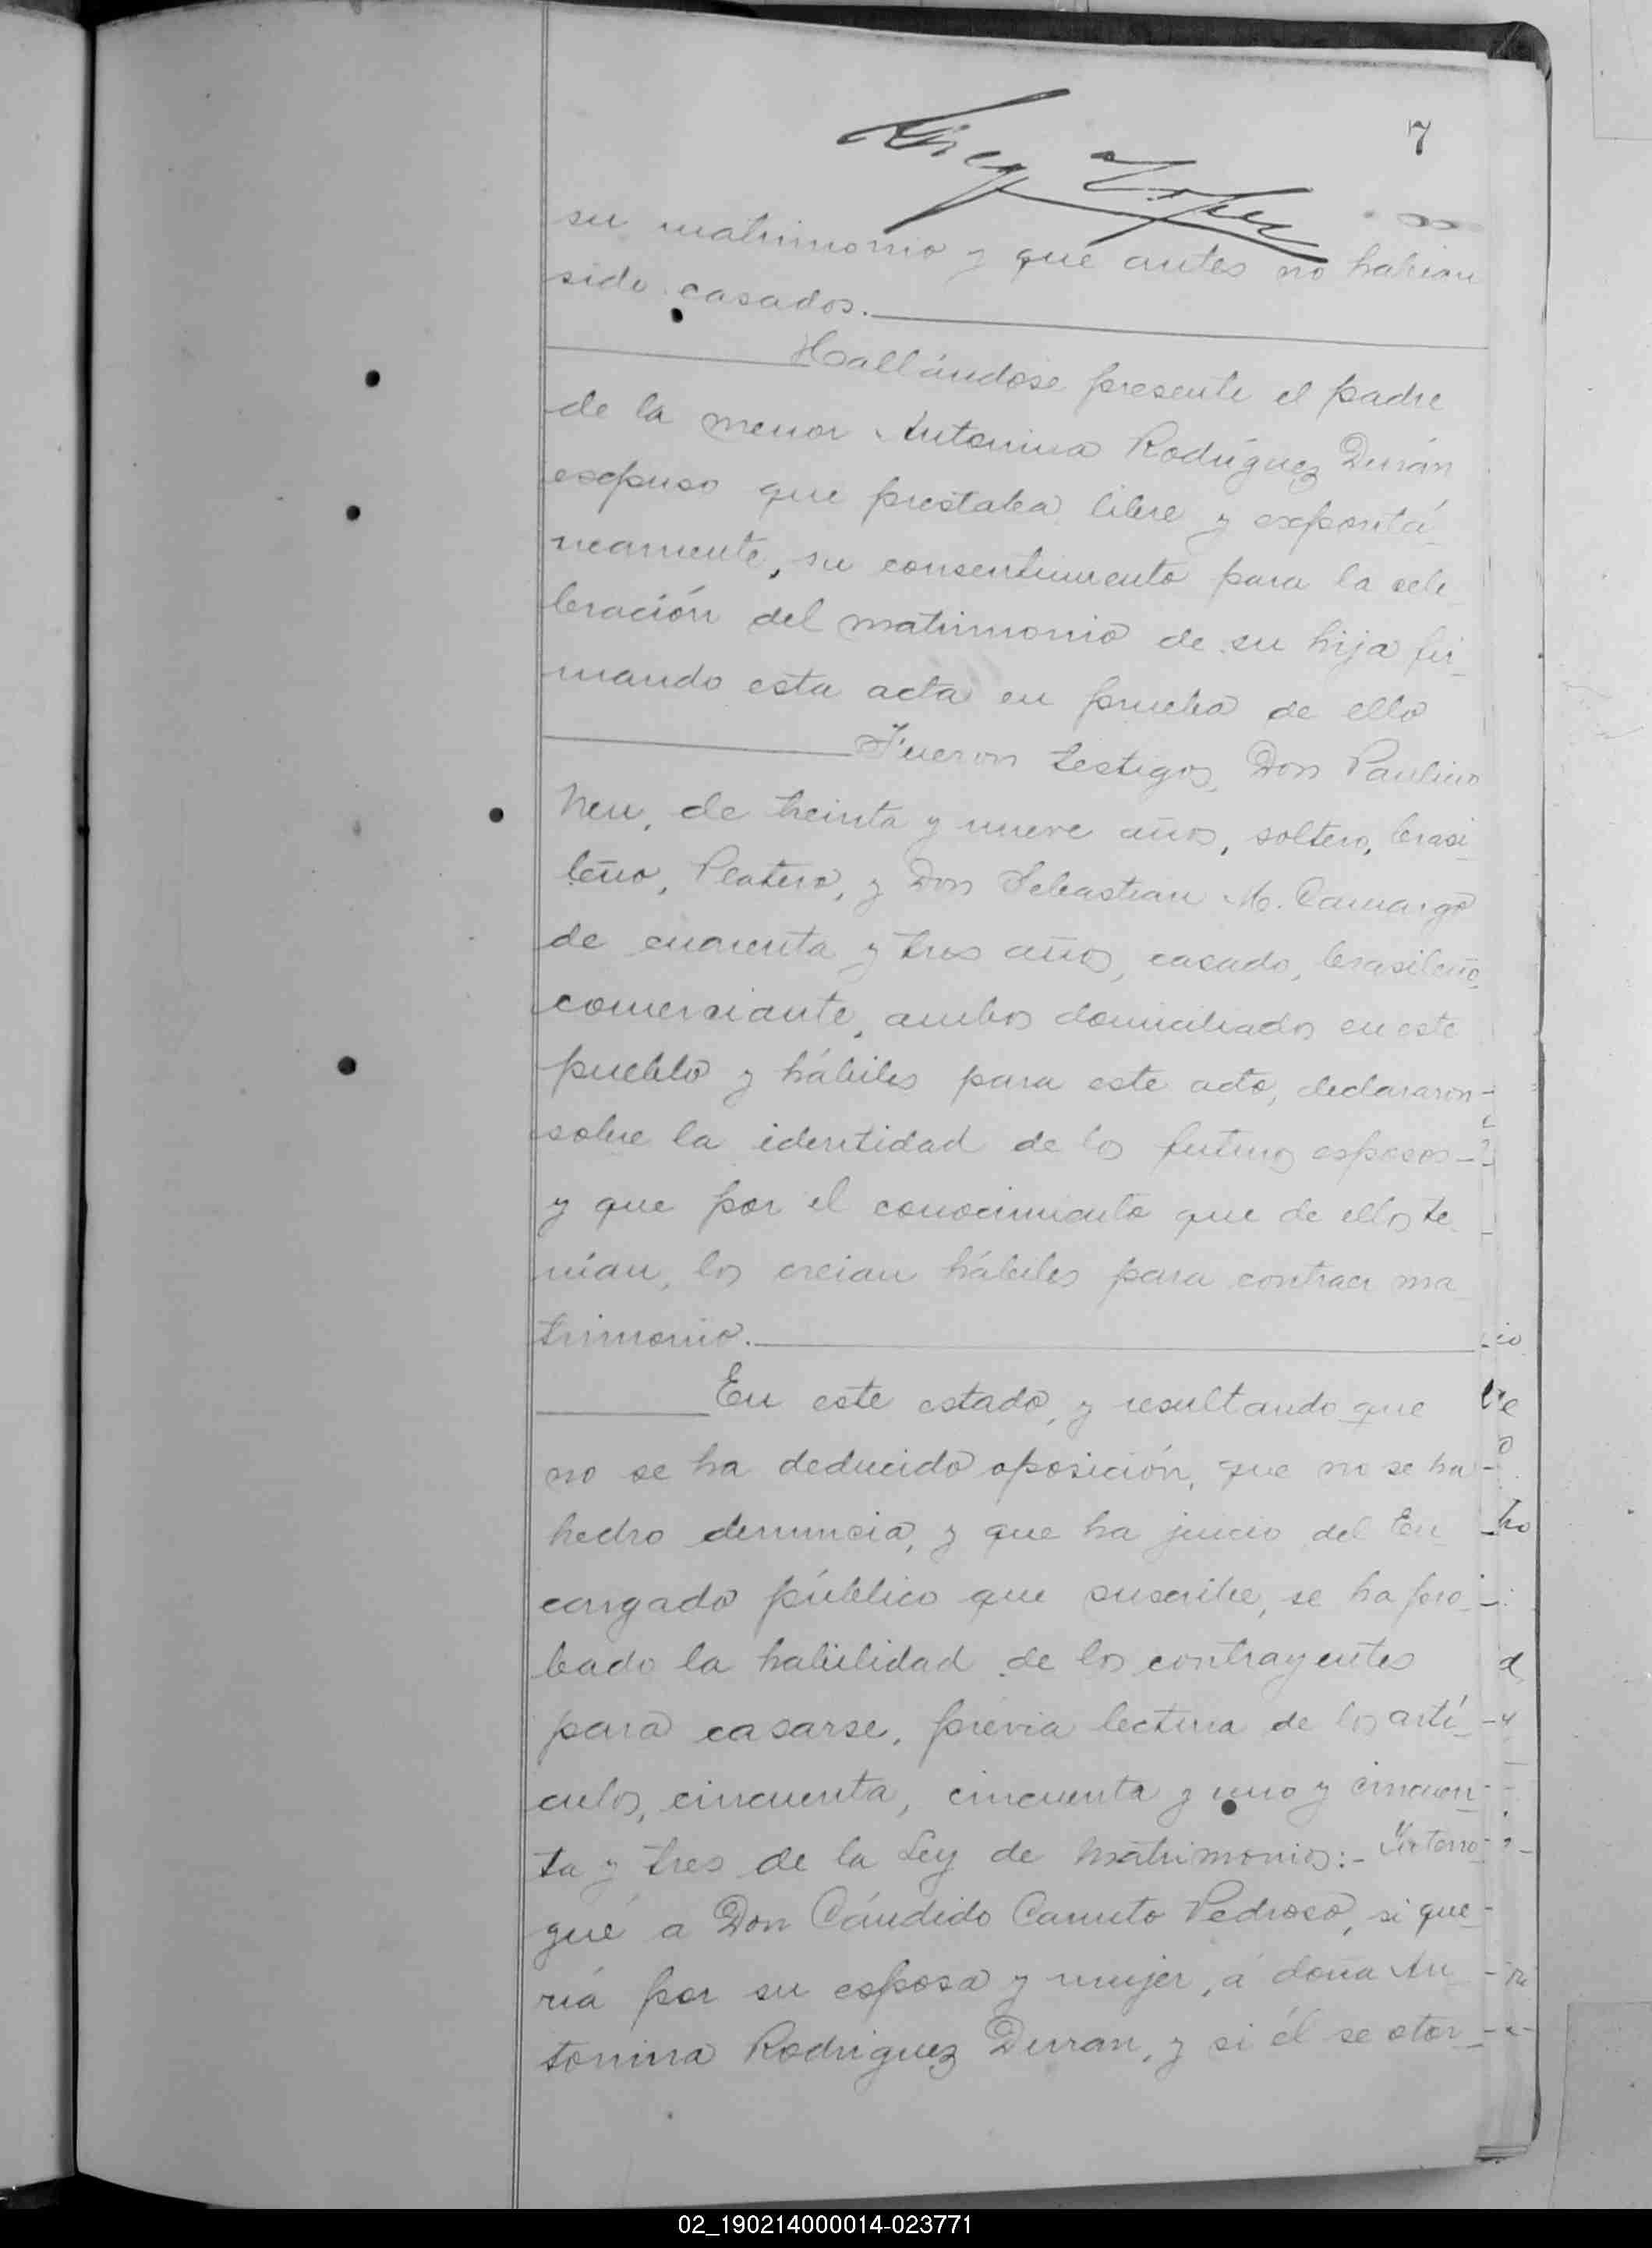 7
su matrimonio y que antes no habian
sido casados.
Hallándose presente el padre
de la menor Antonina Rodríguez Durán
expuso que prestaba libre y expontá-
neamente, su consentimiento para la cele-
bración del matrimonio de su hija fir-
mando esta acta en prueba de ello
Fueron testigos, Don Paulino
Neu, de treinta y nueve años, soltero, brasi-
leño, Platero, y Don Sebastian M. Camargo
de cuarenta y tres años, casado, brasileño,
comerciante, ambos domiciliados en este
pueblo y hábiles para este acto, declararon
sobre la identidad de los futuros esposos
y que por el conocimiento que de ellos te-
nían, los creian hábiles para contraer ma-
trimonio.
En este estado, y resultando que
no se ha deducido oposición, que no se ha
hecho denuncia, y que ha juicio del En-
cargado público que suscribe, se ha pro-
bado la habilidad de los contrayentes
para casarse, prévia lectura de los artí-
culos, cincuenta, cincuenta y uno y cincuen-
ta y tres de la Ley de Matrimonios:- Interro-
gué a Don Cándido Canuto Pedroso, si que-
ría por su esposa y mujer, á doña An-
tonina Rodriguez Durran, y si él se otor-
02_190214000014-023771